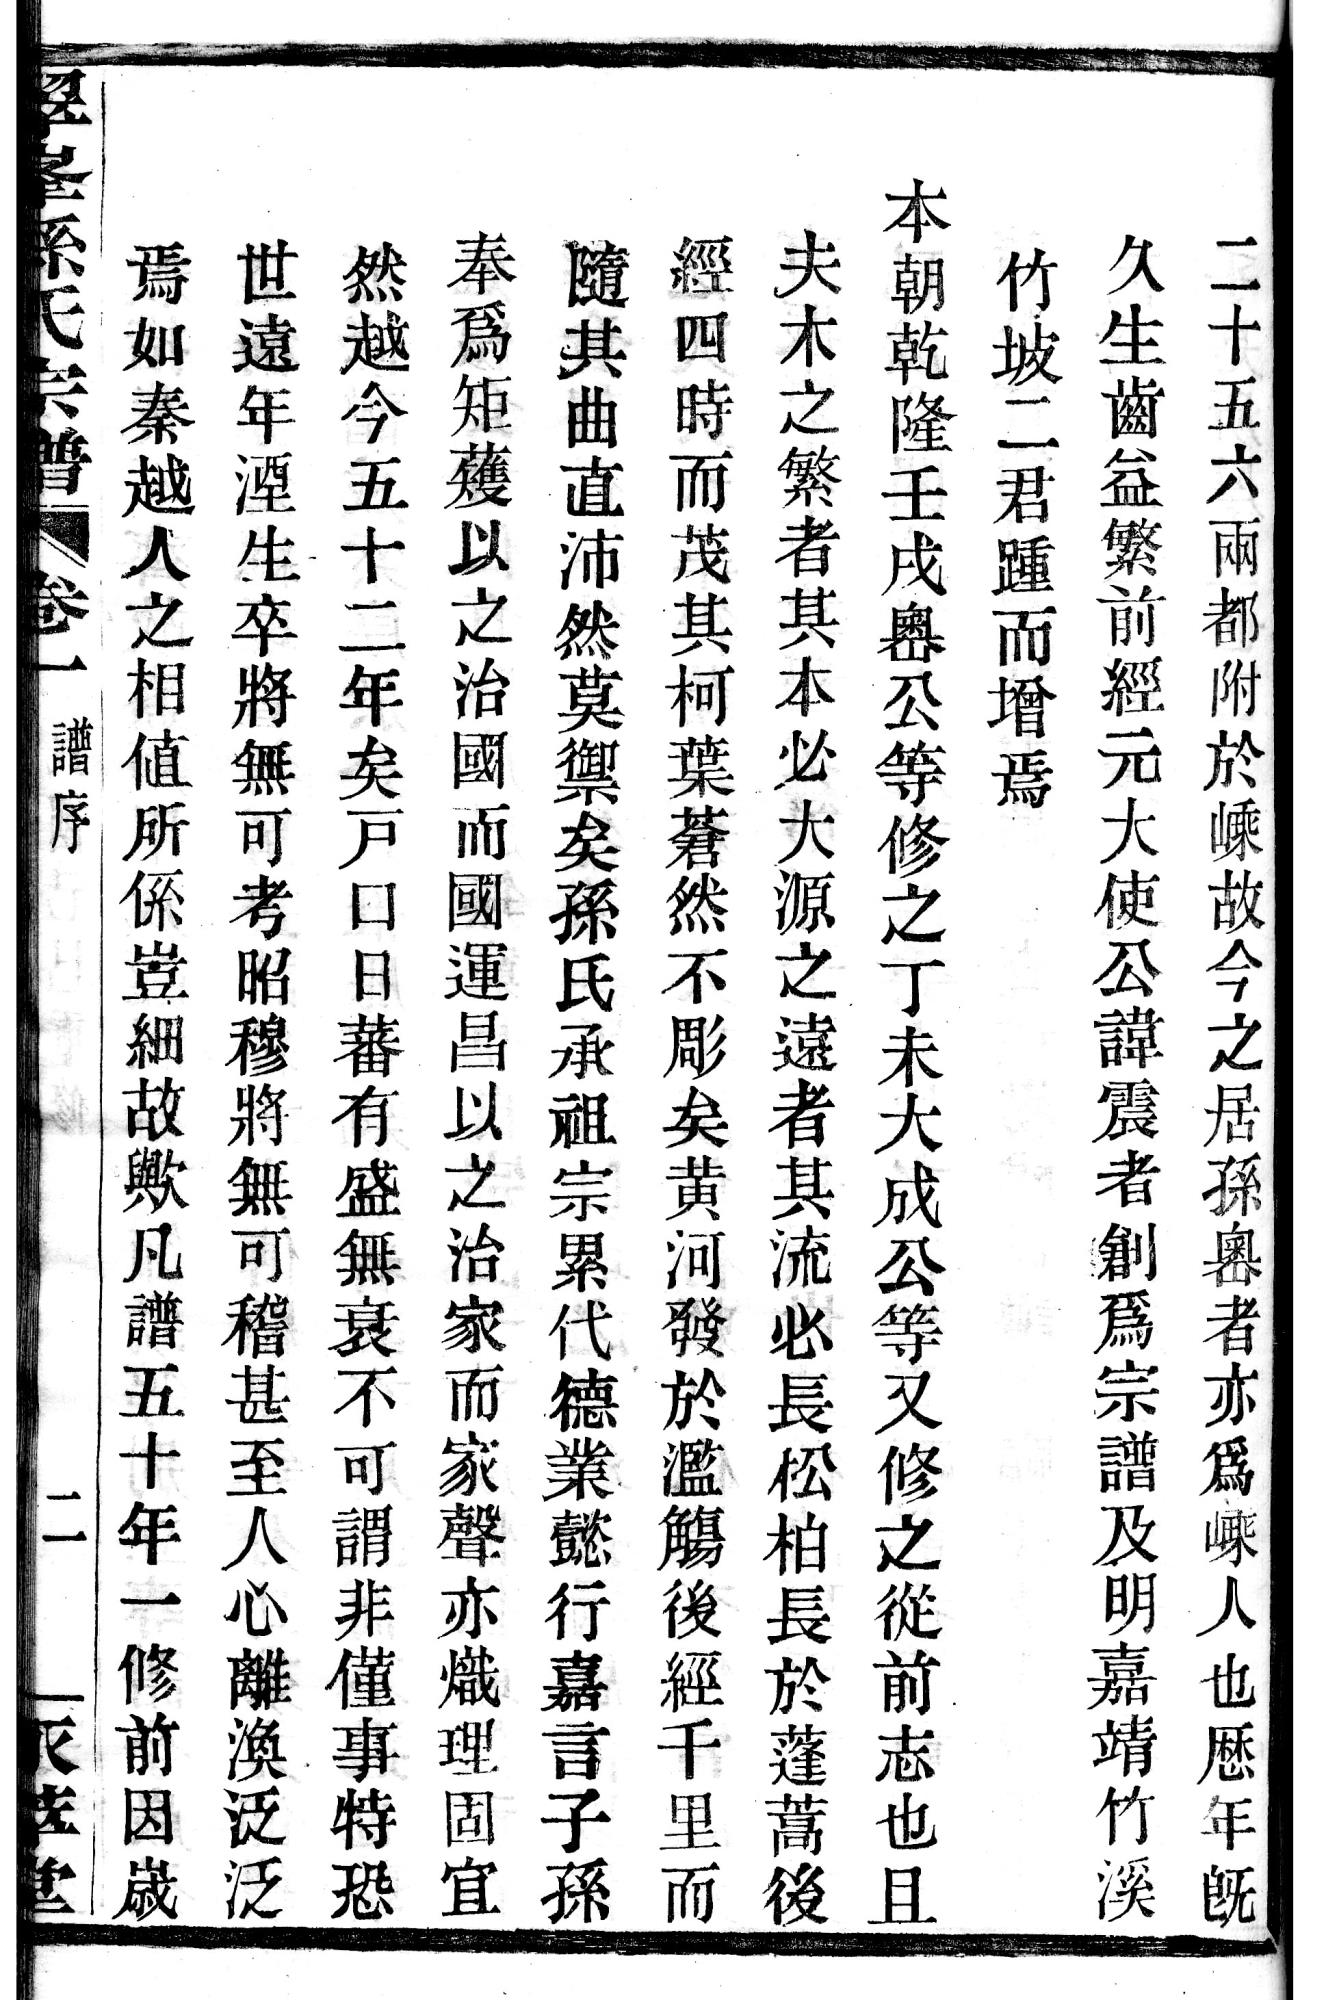 二十五六兩都附於嵊故今之居孫嶴者亦爲嵊人也歷年旣
久生齒益繁前經元大使公諱震者創爲宗譜及明嘉靖竹溪
竹坡二君踵而增焉
本朝乾隆壬戌嶴公等修之丁未大成公等又修之從前志也且
夫木之繁者其本必大源之遠者其流必長松柏長於蓬蒿後
經四時而茂其柯葉蒼然不彫矣黄河發於濫觴後經千里而
隨其曲直沛然莫禦矣孫氏承祖宗累代德業懿行嘉言子孫
奉爲矩蒦以之治國而國運昌以之治家而家聲亦熾理固宜
然越今五十二年矣戸口日蕃有盛無衰不可謂非僅事特恐
世遠年湮生卒將無可考昭穆將無可稽甚至人心離渙泛泛
焉如秦越人之相值所係豈細故歟凡譜五十年一修前因歲
孫氏宗譜 卷一 譜序 二